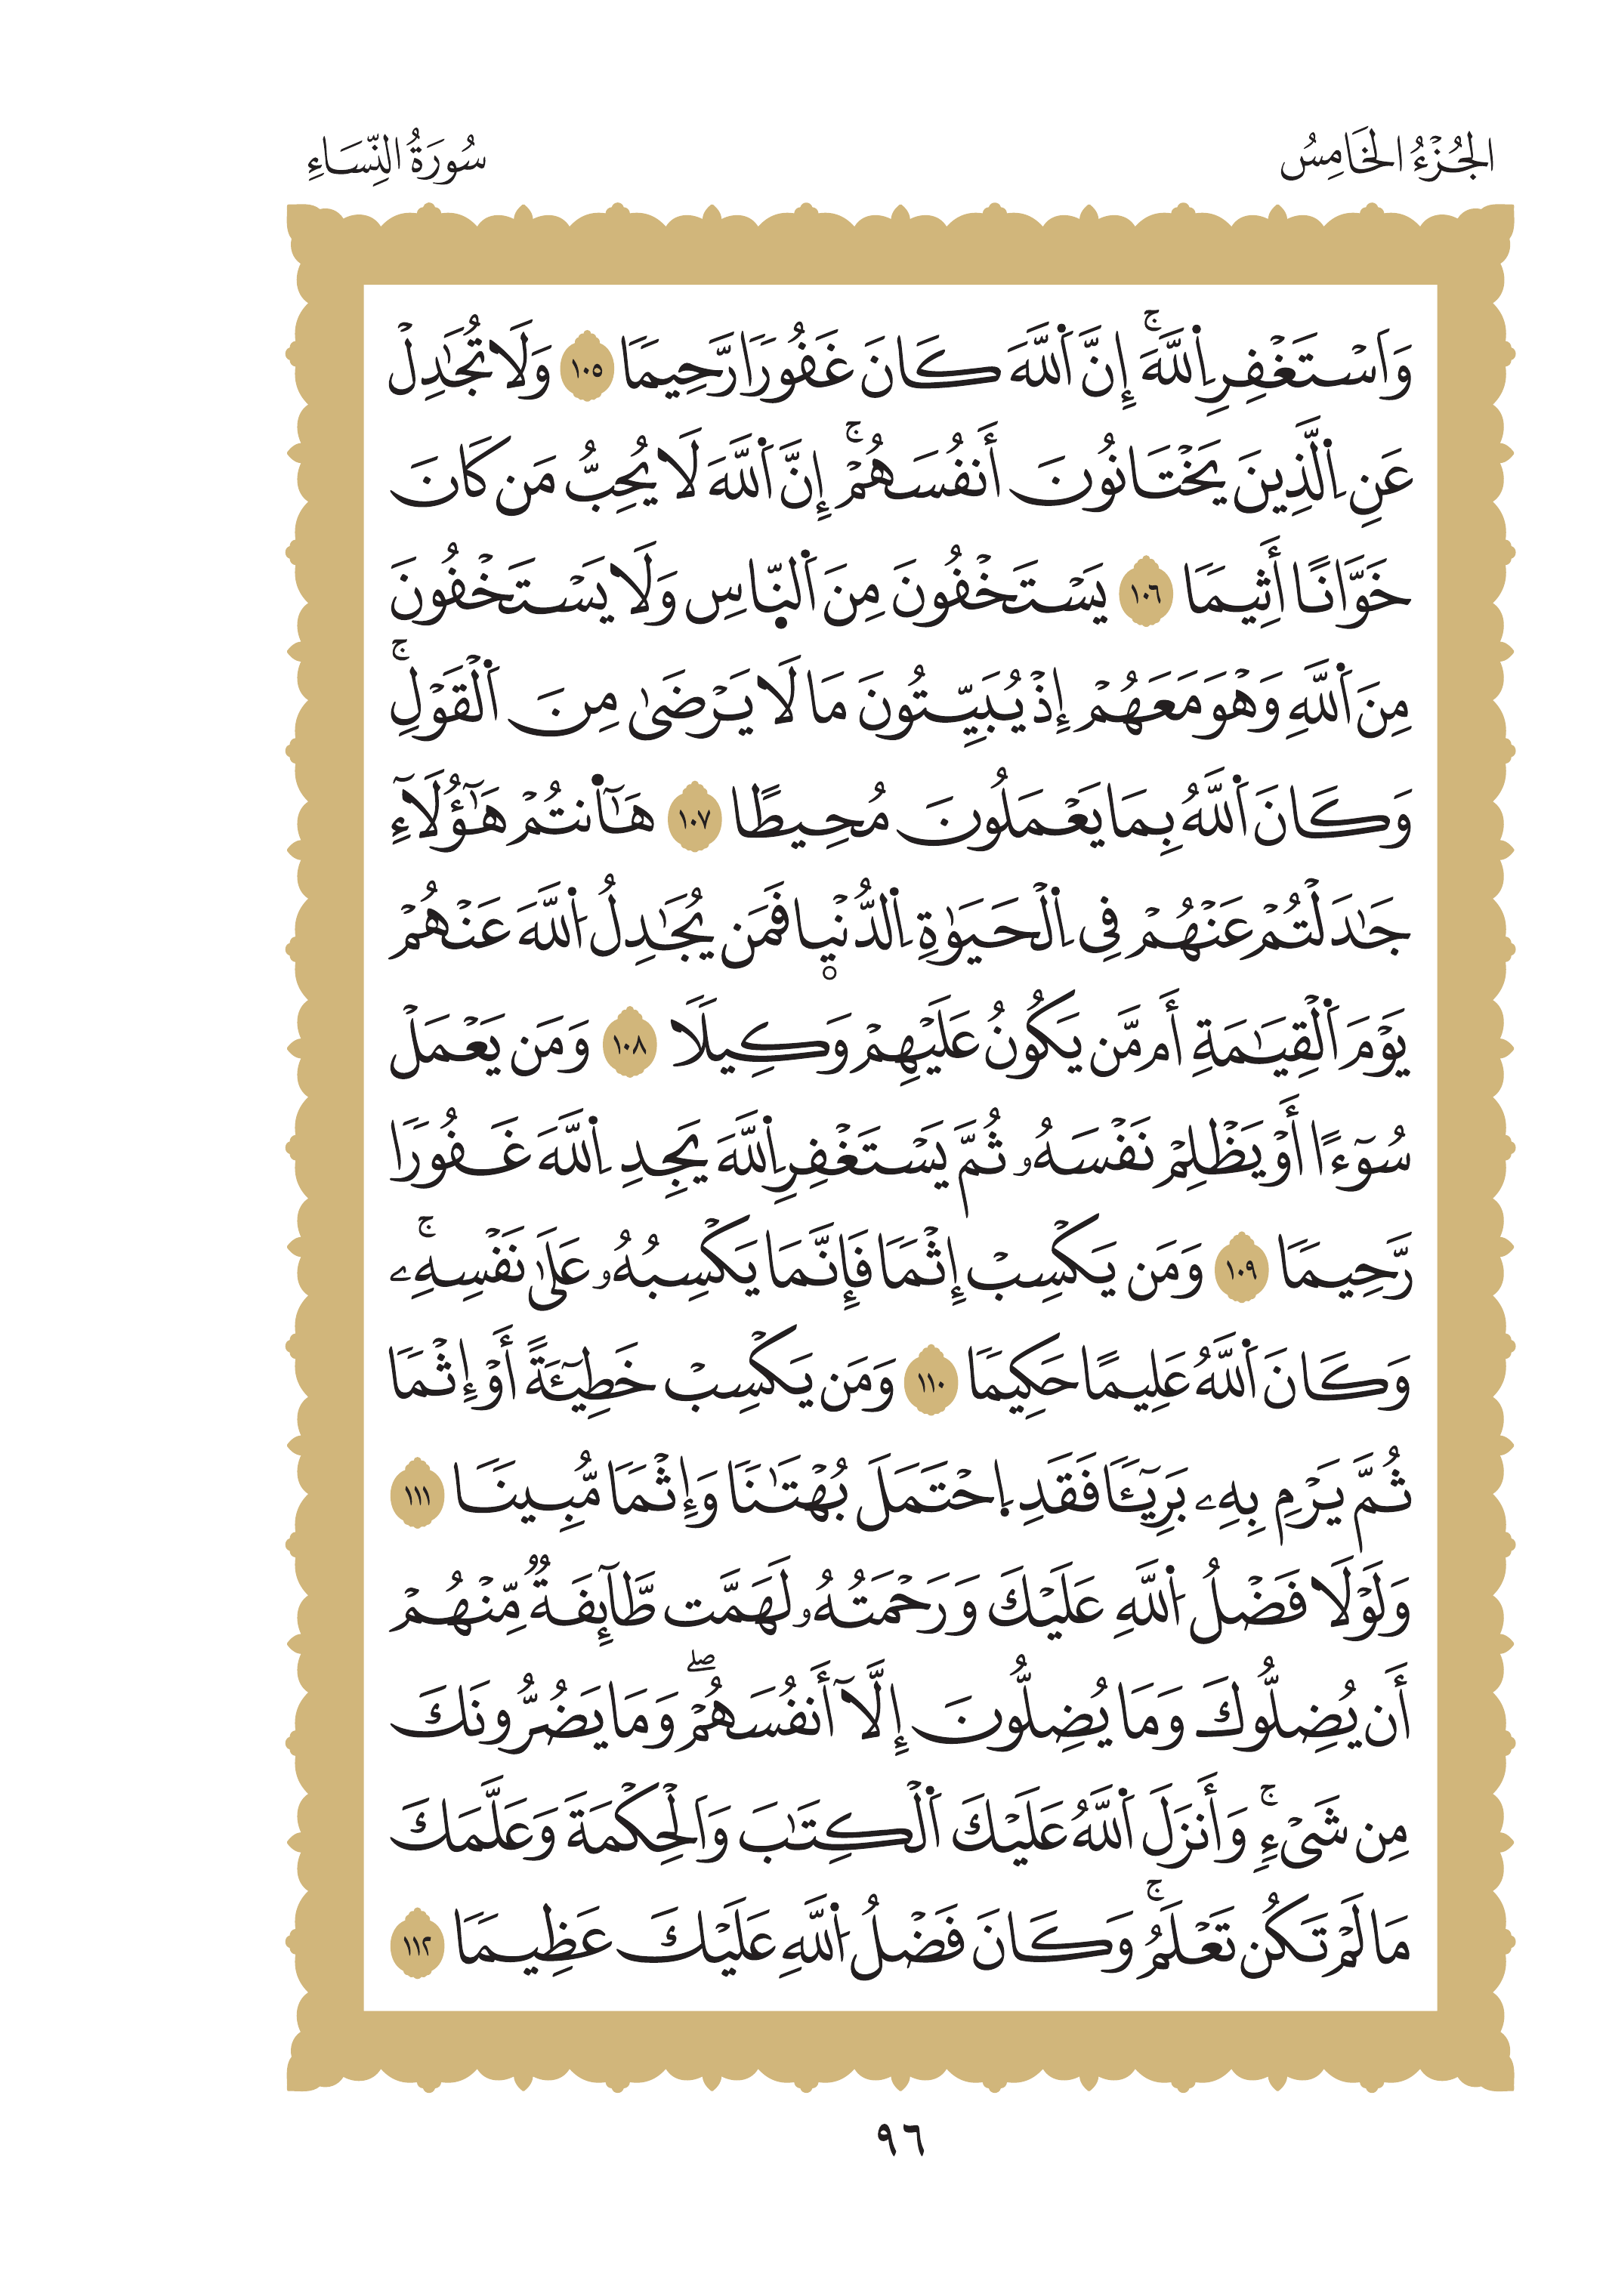 الجُزْءُ الخَامِسُ
سُورَةُ النِّسَاءِ
وَاَسْتَغْفِرِ اِللَّهَۖ إِنَّ اَللَّهَ كَانَ غَفُورًا رَّحِيمًا ١٠٥ وَلَا تُجَٰدِلْ
عَنِ اِلَّذِينَ يَخْتَانُونَ أَنفُسَهُمْۚ إِنَّ اَللَّهَ لَا يُحِبُّ مَن كَانَ
خَوَّانًا أَثِيمًا ١٠٦ يَسْتَخْفُونَ مِنَ اَلنّ۪اسِ وَلَا يَسْتَخْفُونَ
مِنَ اَللَّهِ وَهْوَ مَعَهُمْ إِذْ يُبَيِّتُونَ مَا لَا يَرْضَىٰ مِنَ اَلْقَوْلِۚ
وَكَانَ اَللَّهُ بِمَا يَعْمَلُونَ مُحِيطًا ١٠٧ هَٰٓا۬نتُمْ هَٰٓؤُلَآءِ
جَٰدَلْتُمْ عَنْهُمْ فِى اِلْحَيَوٰةِ اِلدُّنْي۪ا فَمَن يُجَٰدِلُ اُللَّهَ عَنْهُمْ
يَوْمَ اَلْقِيَٰمَةِ أَم مَّن يَكُونُ عَلَيْهِمْ وَكِيلًا ١٠٨ وَمَن يَعْمَلْ
سُوٓءًا أَوْ يَظْلِمْ نَفْسَهُۥ ثُمَّ يَسْتَغْفِرِ اِللَّهَ يَجِدِ اِللَّهَ غَفُورًا
رَّحِيمًا ١٠٩ وَمَن يَكْسِبْ إِثْمًا فَإِنَّمَا يَكْسِبُهُۥ عَلَىٰ نَفْسِهِۦۚ
وَكَانَ اَللَّهُ عَلِيمًا حَكِيمًا ١١٠ وَمَن يَكْسِبْ خَطِيٓـَٔةً أَوْ إِثْمًا
ثُمَّ يَرْمِ بِهِۦ بَرِيٓـًٔا فَقَدِ اِحْتَمَلَ بُهْتَٰنًا وَإِثْمًا مُّبِينًا ١١١
وَلَوْلَا فَضْلُ اُللَّهِ عَلَيْكَ وَرَحْمَتُهُۥ لَهَمَّت طَّآئِفَةٌ مِّنْهُمْ
أَن يُضِلُّوكَ وَمَا يُضِلُّونَ إِلَّآ أَنفُسَهُمْۖ وَمَا يَضُرُّونَكَ
مِن شَىْءٍۚ وَأَنزَلَ اَللَّهُ عَلَيْكَ اَلْكِتَٰبَ وَالْحِكْمَةَ وَعَلَّمَكَ
مَا لَمْ تَكُن تَعْلَمُۚ وَكَانَ فَضْلُ اُللَّهِ عَلَيْكَ عَظِيمًا ١١٢
٩٦